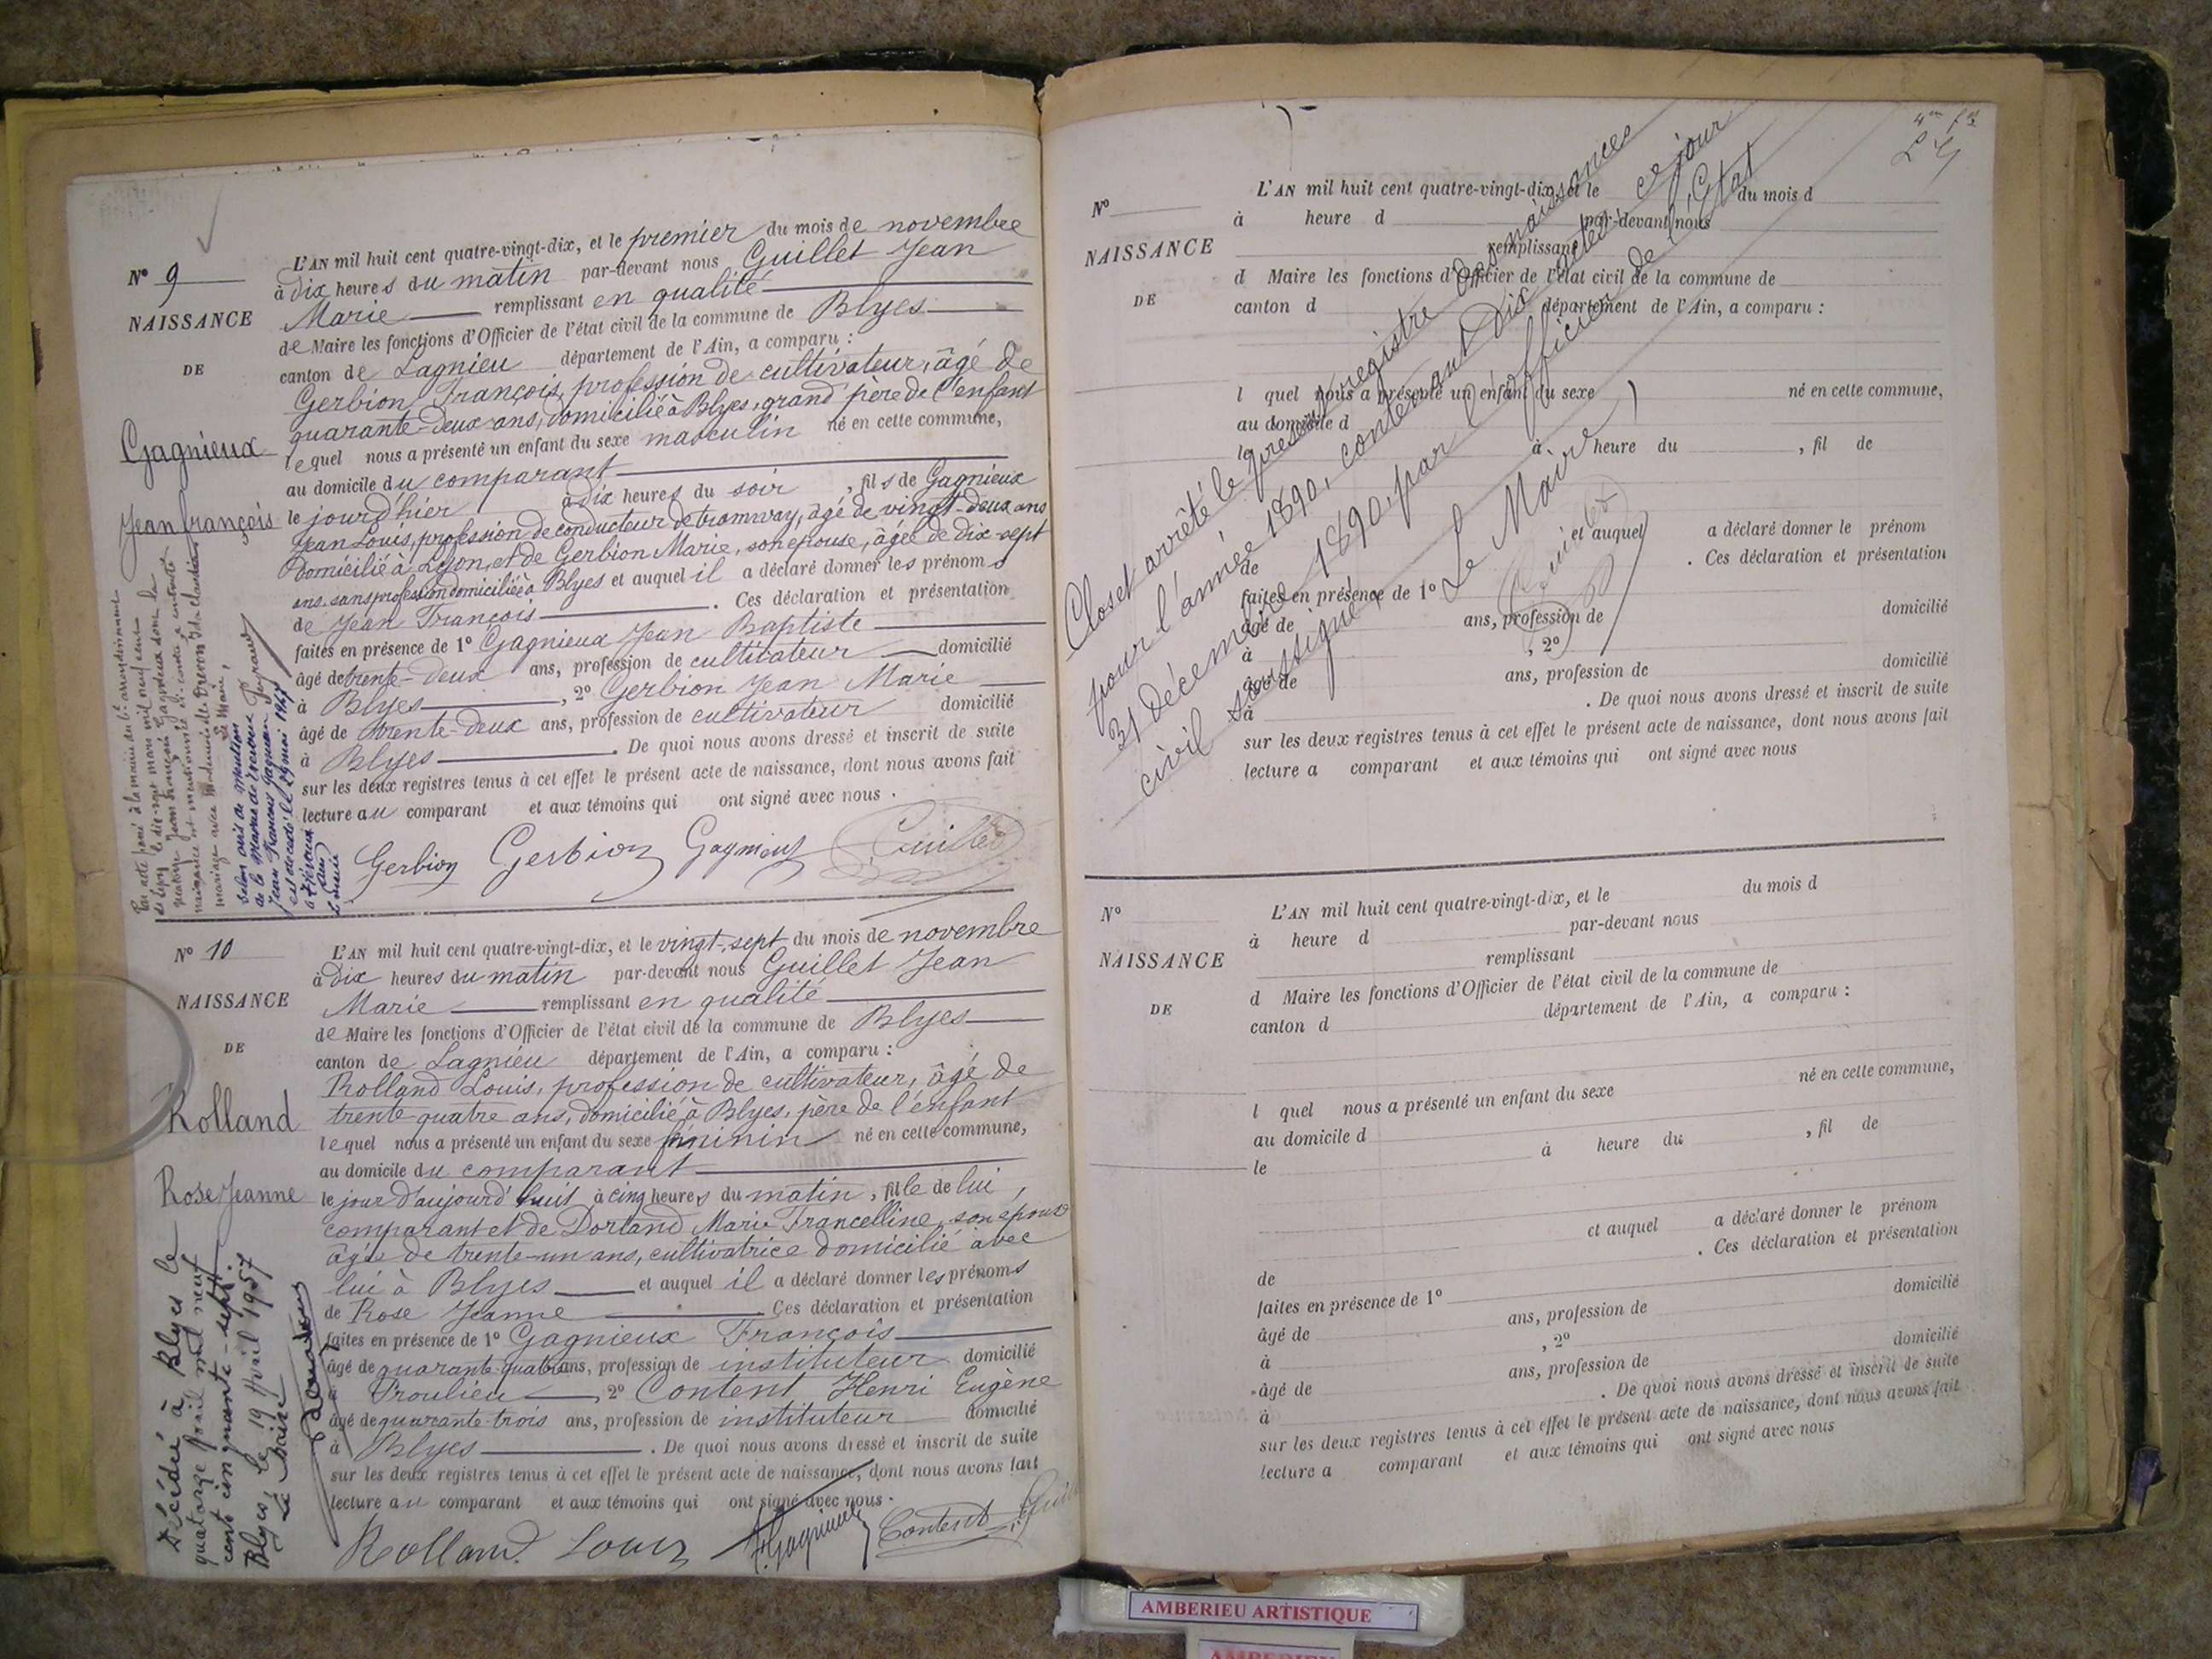 N° 9
NAISSANCE
DE
Gagnieux
Jean françois
L'AN mil huit cent quatre-vingt-dix, et le premier du mois de novembre
à dix heures du matin par-devant nous Guillet Jean
Marie remplissant en qualité
de Maire les fonctions d'Officier de l'état civil de la commune de Blyes
canton de Lagnieu département de l'Ain, a comparu :
Gerbion François, profession de cultivateur, âgé de
quarante-deux ans, domicilié à Blyes, grand père de l'enfant
lequel nous a présenté un enfant du sexe masculin né en cette commune,
au domicile du comparant
le jour d'hier à dix heures du soir, fils de Gagnieux
Jean Louis, profession de conducteur de tramway, âgé de vingt-deux ans
domicilié à Lyon, et de Gerbion Marie, son épouse, âgée de dix-sept
ans, sans profession domiciliée à Blyes et auquel il a déclaré donner les prénoms
de Jean François. Ces déclaration et présentation
faites en présence de 1° Gagnieux Jean Baptiste
âgé de trente-deux ans, profession de cultivateur domicilié
à Blyes, 2° Gerbion Jean Marie
âgé de trente-deux ans, profession de cultivateur domicilié
à Blyes. De quoi nous avons dressé et inscrit de suite
sur les deux registres tenus à cet effet le présent acte de naissance, dont nous avons fait
lecture au comparant et aux témoins qui ont signé avec nous.
Gerbion Gerbion Gagnieux Guillet
Selon avis de mention
de la Mairie de
Jean François Gagnieux
est décédé le 1947
N° 10
NAISSANCE
DE
Rolland
Rose Jeanne
L'AN mil huit cent quatre-vingt-dix, et le vingt-sept du mois de novembre
à dix heures du matin par-devant nous Guillet Jean
Marie remplissant en qualité
de Maire les fonctions d'Officier de l'état civil de la commune de Blyes
canton de Lagnieu département de l'Ain, a comparu :
Rolland Louis, profession de cultivateur, âgé de
trente-quatre ans, domicilié à Blyes, père de l'enfant
lequel nous a présenté un enfant du sexe féminin né en cette commune,
au domicile du comparant
le jour d'aujourd'huit à cinq heures du matin, fille de lui
comparant et de Dortand Marie Francelline, son épouse
âgée de trente-un ans, cultivatrice domicilié avec
lui à Blyes et auquel il a déclaré donner les prénoms
de Rose Jeanne. Ces déclaration et présentation
faites en présence de 1° Gagnieux François
âgé de quarante-quatre ans, profession de instituteur domicilié
à Proulieu, 2° Content Henri Eugène
âgé de quarante-trois ans, profession de instituteur domicilié
à Blyes. De quoi nous avons dressé et inscrit de suite
sur les deux registres tenus à cet effet le présent acte de naissance, dont nous avons fait
lecture au comparant et aux témoins qui ont signé avec nous.
Rolland Louis F. Gagnieux Content
Décédée à Blyes le
quatorze Avril mil neuf
cent cinquante-sept.
Blyes, le 19 Avril 1957
Le Maire
N°
NAISSANCE
DE
L'AN mil huit cent quatre-vingt-dix, et le du mois d
à heure d par-devant nous
remplissant
d Maire les fonctions d'Officier de l'état civil de la commune de
canton d département de l'Ain, a comparu :
l quel nous a présenté un enfant du sexe né en cette commune,
au domicile d
le à heure du , fil de
et auquel a déclaré donner le prénom
de . Ces déclaration et présentation
faites en présence de 1°
âgé de ans, profession de domicilié
à , 2°
âgé de ans, profession de domicilié
à . De quoi nous avons dressé et inscrit de suite
sur les deux registres tenus à cet effet le présent acte de naissance, dont nous avons fait
lecture a comparant et aux témoins qui ont signé avec nous
Clos et arrêté le présent registre de naissances
pour l'année 1890, contenant Dix actes, ce jour
31 décembre 1890, par l'officier de l'Etat
civil soussigné,
Le Maire
N°
NAISSANCE
DE
L'AN mil huit cent quatre-vingt-dix, et le du mois d
à heure d par-devant nous
remplissant
d Maire les fonctions d'Officier de l'état civil de la commune de
canton d département de l'Ain, a comparu :
l quel nous a présenté un enfant du sexe né en cette commune,
au domicile d
le à heure du , fil de
et auquel a déclaré donner le prénom
de . Ces déclaration et présentation
faites en présence de 1°
âgé de ans, profession de domicilié
à , 2°
âgé de ans, profession de domicilié
à . De quoi nous avons dressé et inscrit de suite
sur les deux registres tenus à cet effet le présent acte de naissance, dont nous avons fait
lecture a comparant et aux témoins qui ont signé avec nous
AMBERIEU ARTISTIQUE
AMBERIEU